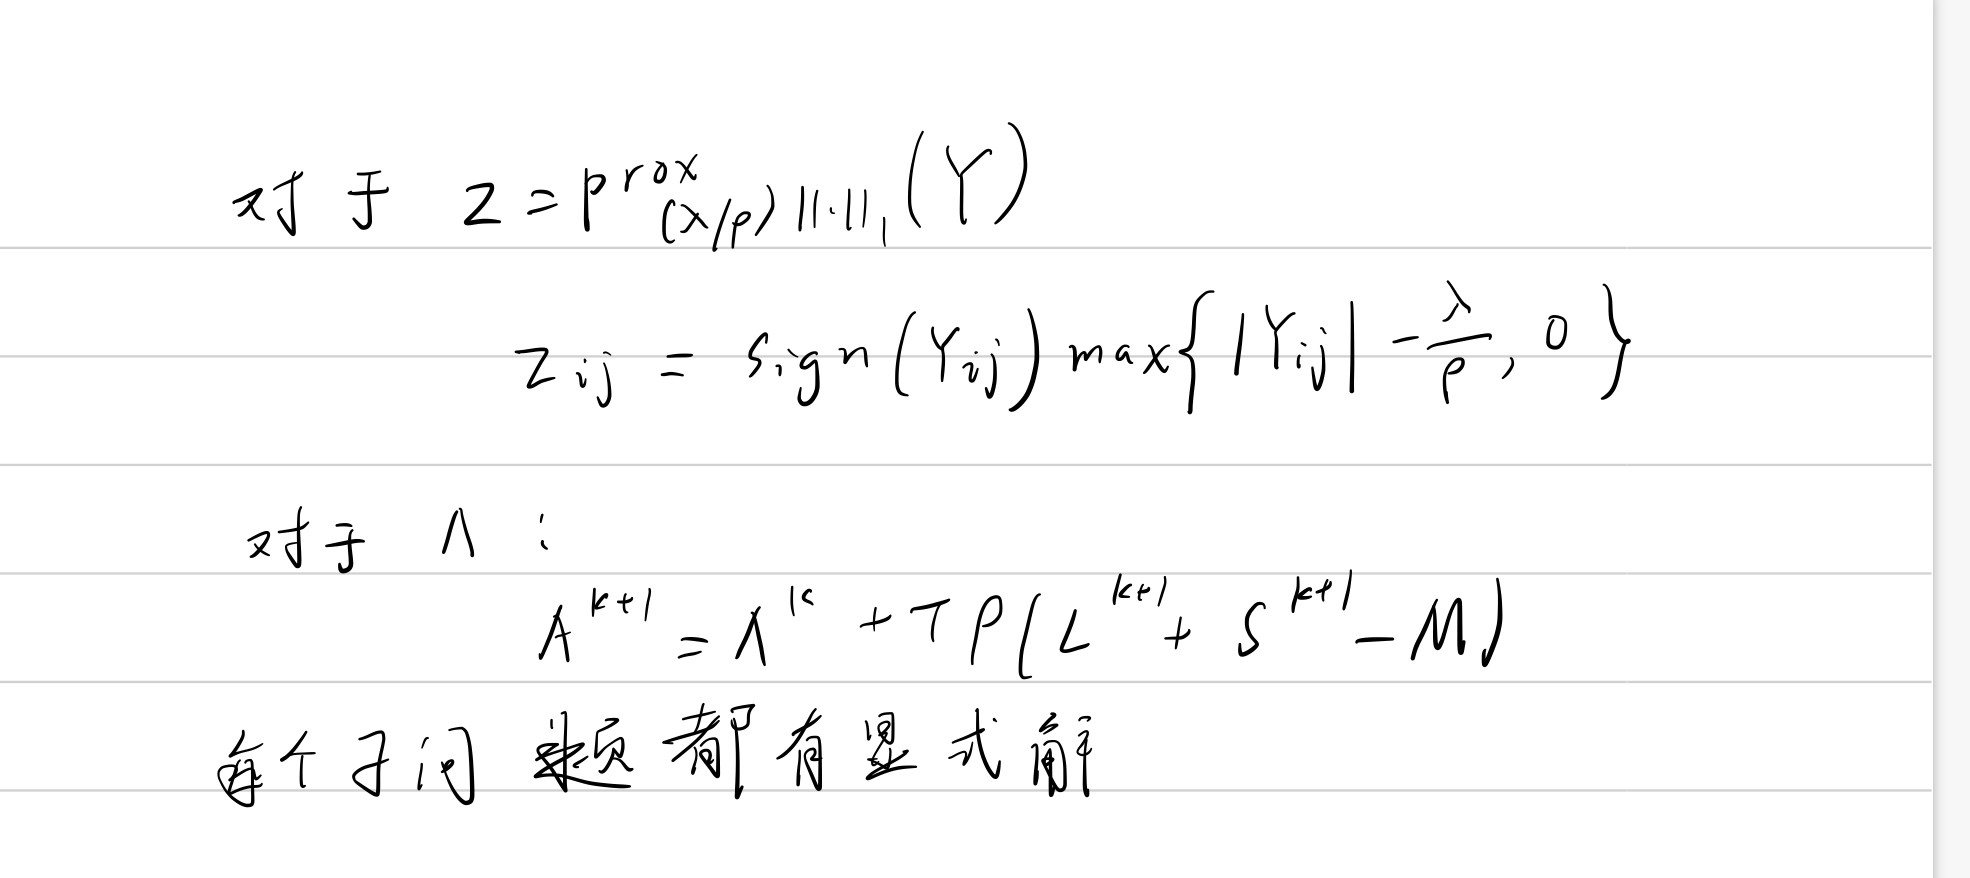 对于 Z = prox_{(λ/ρ)||·||_1}(Y)
Z_{ij} = sign(Y_{ij}) max{|Y_{ij}| - λ/ρ, 0}
对于 Λ :
Λ^{k+1} = Λ^k + τρ(L^{k+1} + S^{k+1} - M)
每个子问题都有显式解